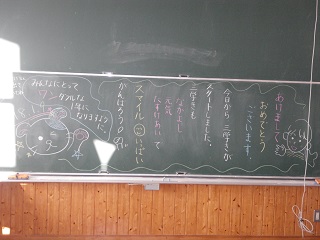 あけまして
おめでとう
ございます。
今日から 三学きが
スタートしました。
三学きも
なかよし
元気
たすけあいで
スマイル いっぱい
がんばろう
みんなにとって
ワンダフルな
1年に
なりますように。